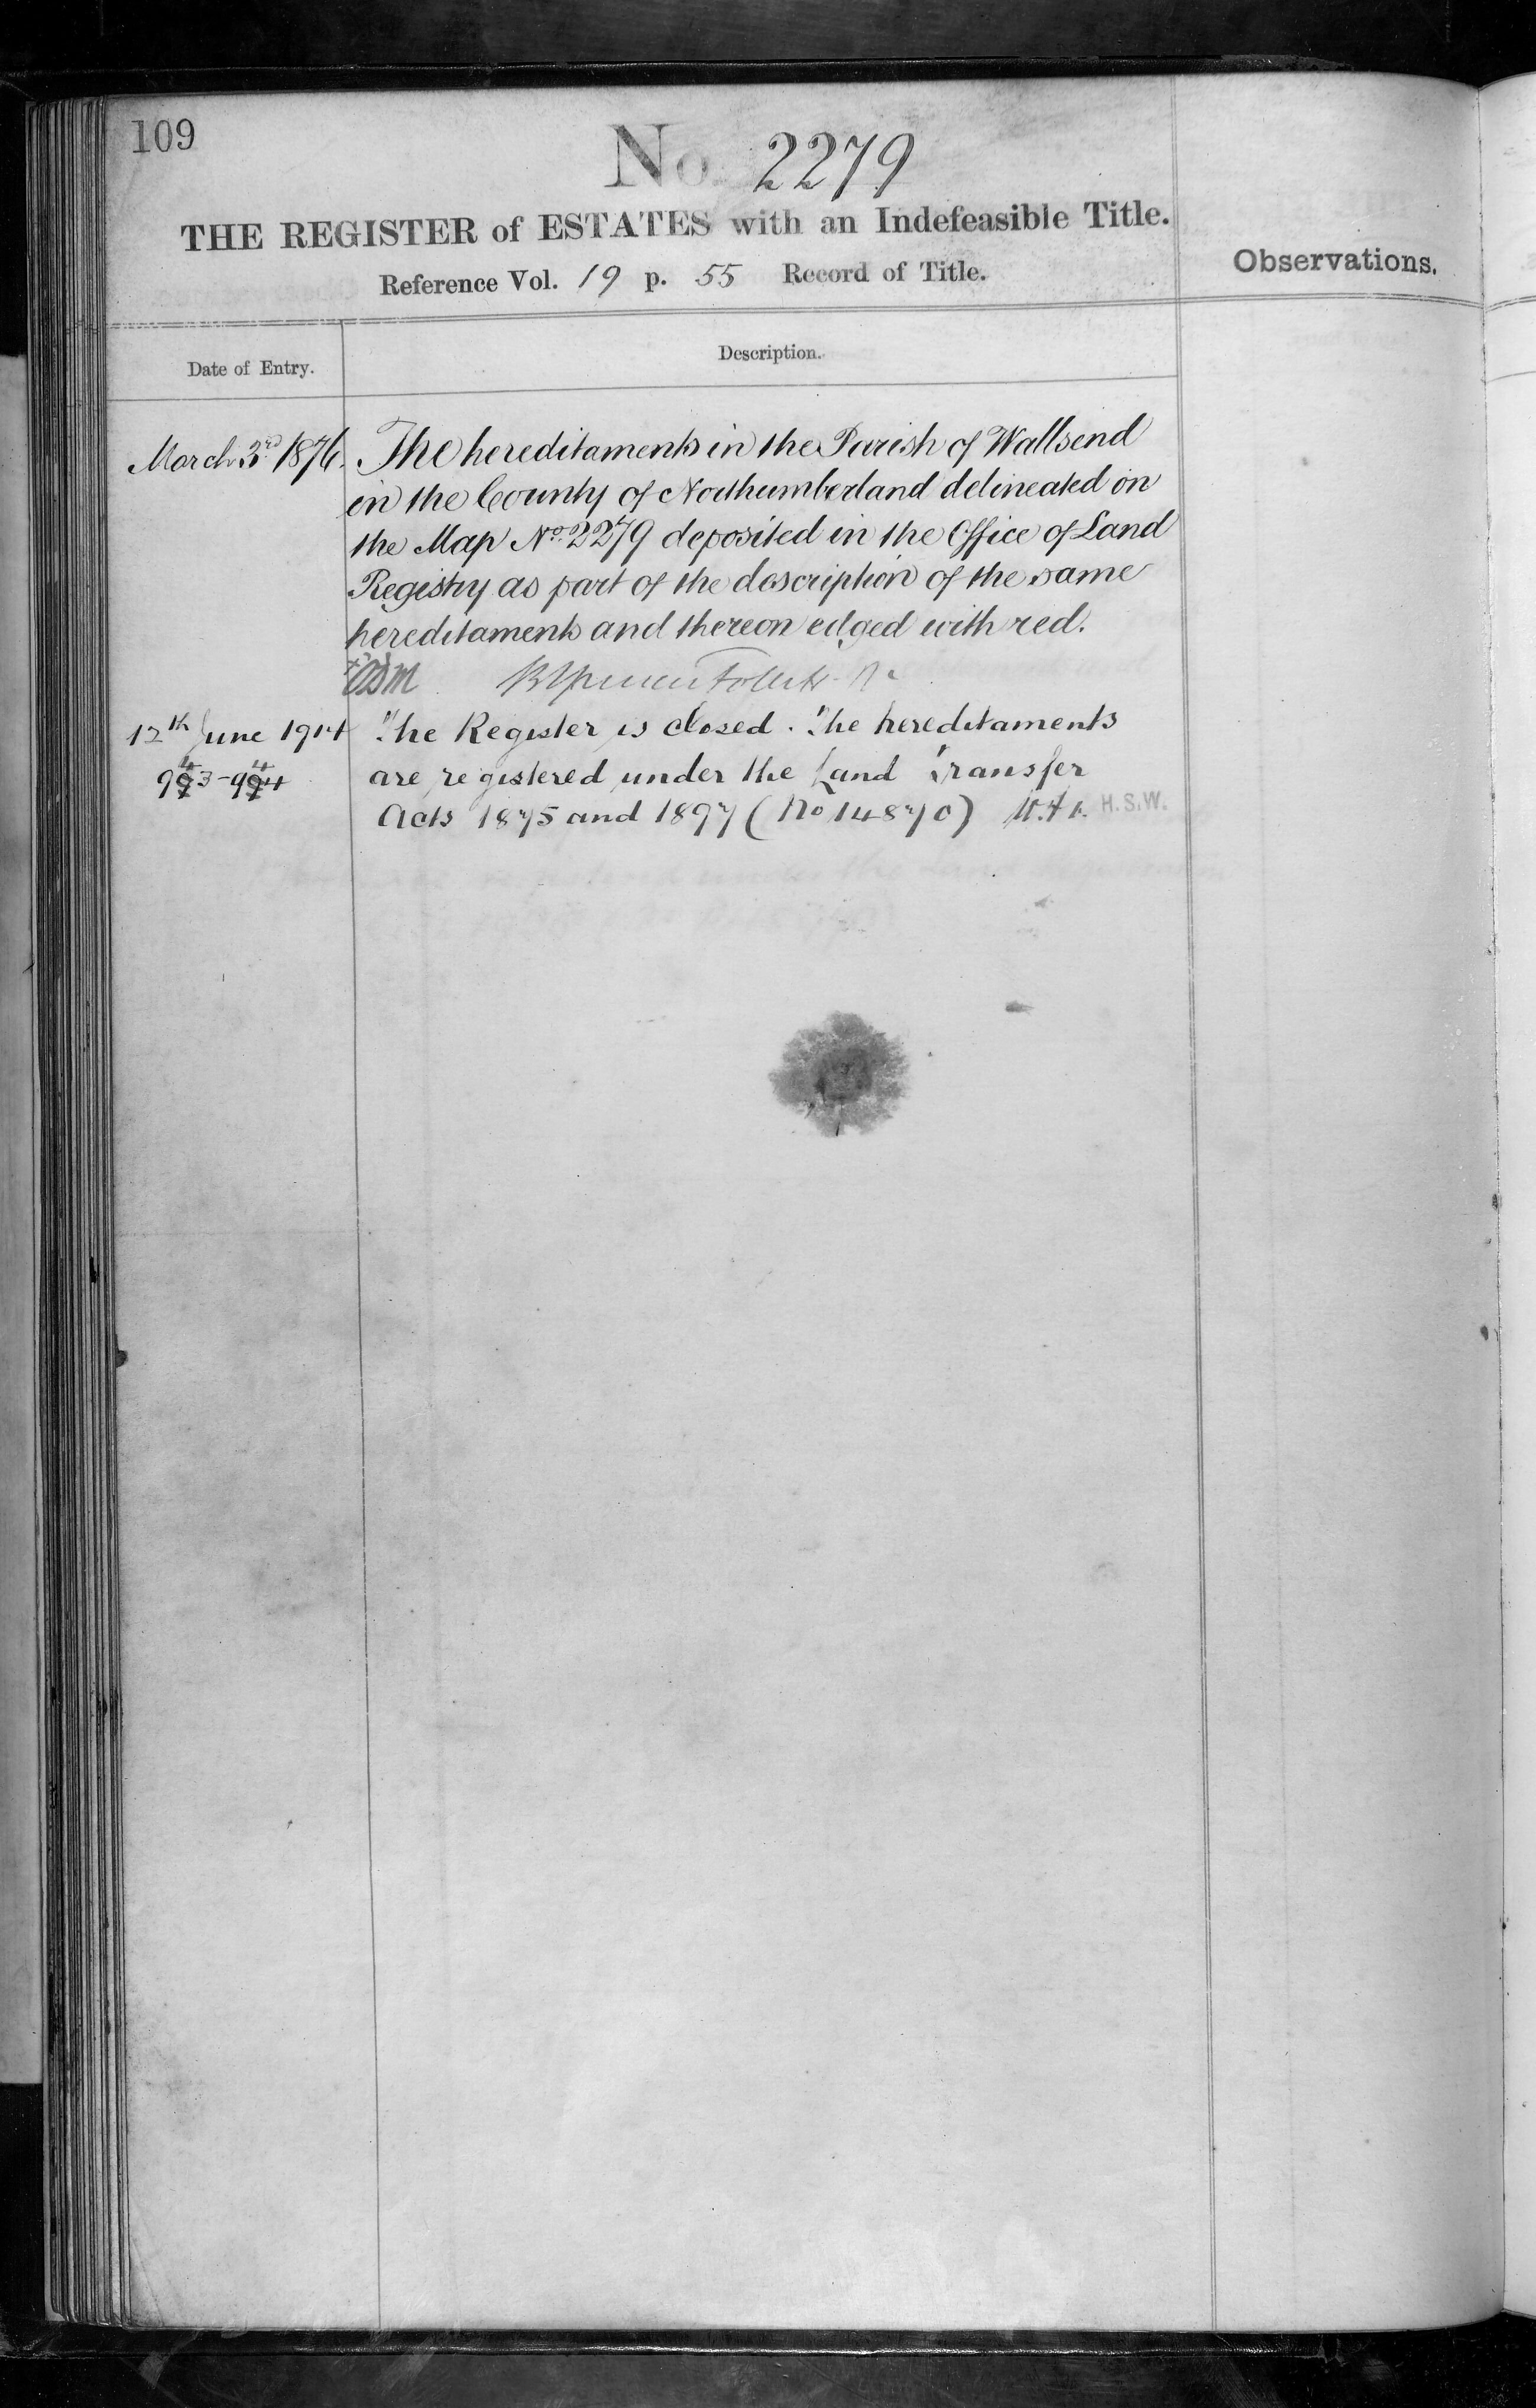 109
No. 2279
THE REGISTER of ESTATES with an Indefeasible Title.
Reference Vol. 19 p. 55 Record of Title.
Observations.
Date of Entry.
Description.
March 3rd 1876. The hereditaments in the Parish of Wallsend
in the County of Northumberland delineated on
the Map No. 2279 deposited in the Office of Land
Registry as part of the description of the same
hereditaments and thereon edged with red.
12th June 1914 The Register is closed. The hereditaments
are registered under the Land Transfer
Acts 1875 and 1897 (No 14870) H.S.W.